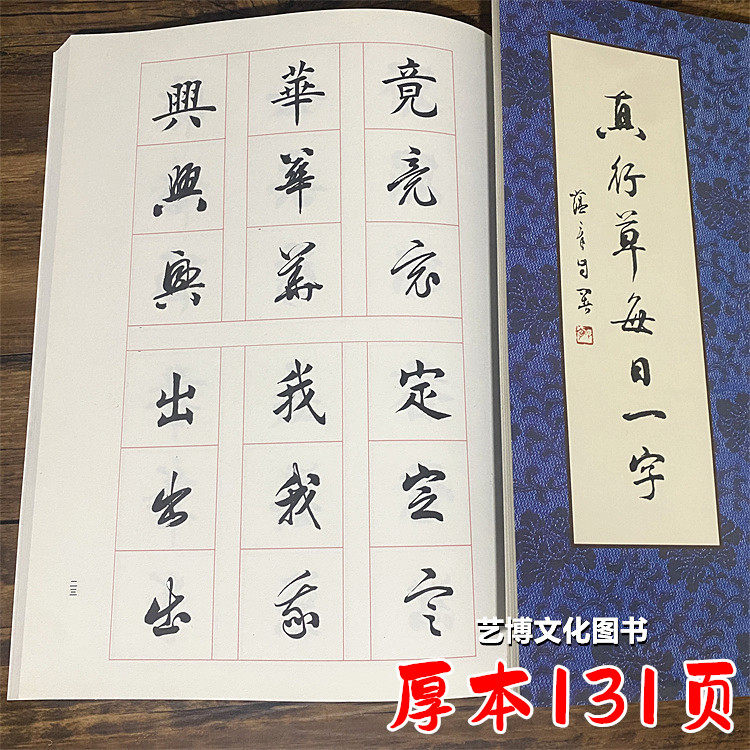 竟竟竟
華華華
興興興
定定定
我我我
出出出
二三
真行草每日一字
艺博文化图书
厚本131页